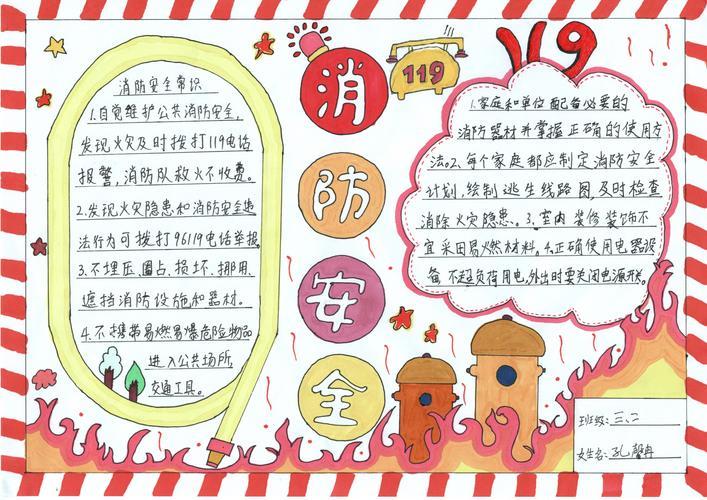 消防安全常识
1.自觉维护公共消防安全,
发现火灾及时拨打119电话
报警,消防队救火不收费。
2.发现火灾隐患和消防安全违
法行为可拨打96119电话举报
3.不埋压、圈占、损坏、挪用、
遮挡消防设施和器材。
4.不携带易燃易爆危险物品
进入公共场所,
交通工具。
消
防
安
全
119
119
1.家庭和单位配备必要的
消防器材并掌握正确的使用方
法。2、每个家庭都应制定消防安全
计划,绘制逃生线路图,及时检查
消除火灾隐患、3、室内装修装饰不
宜采用易燃材料。4.正确使用电器设
备、不超负荷用电,外出时要关闭电源开关。
班级:三、二
姓名:孔馨冉